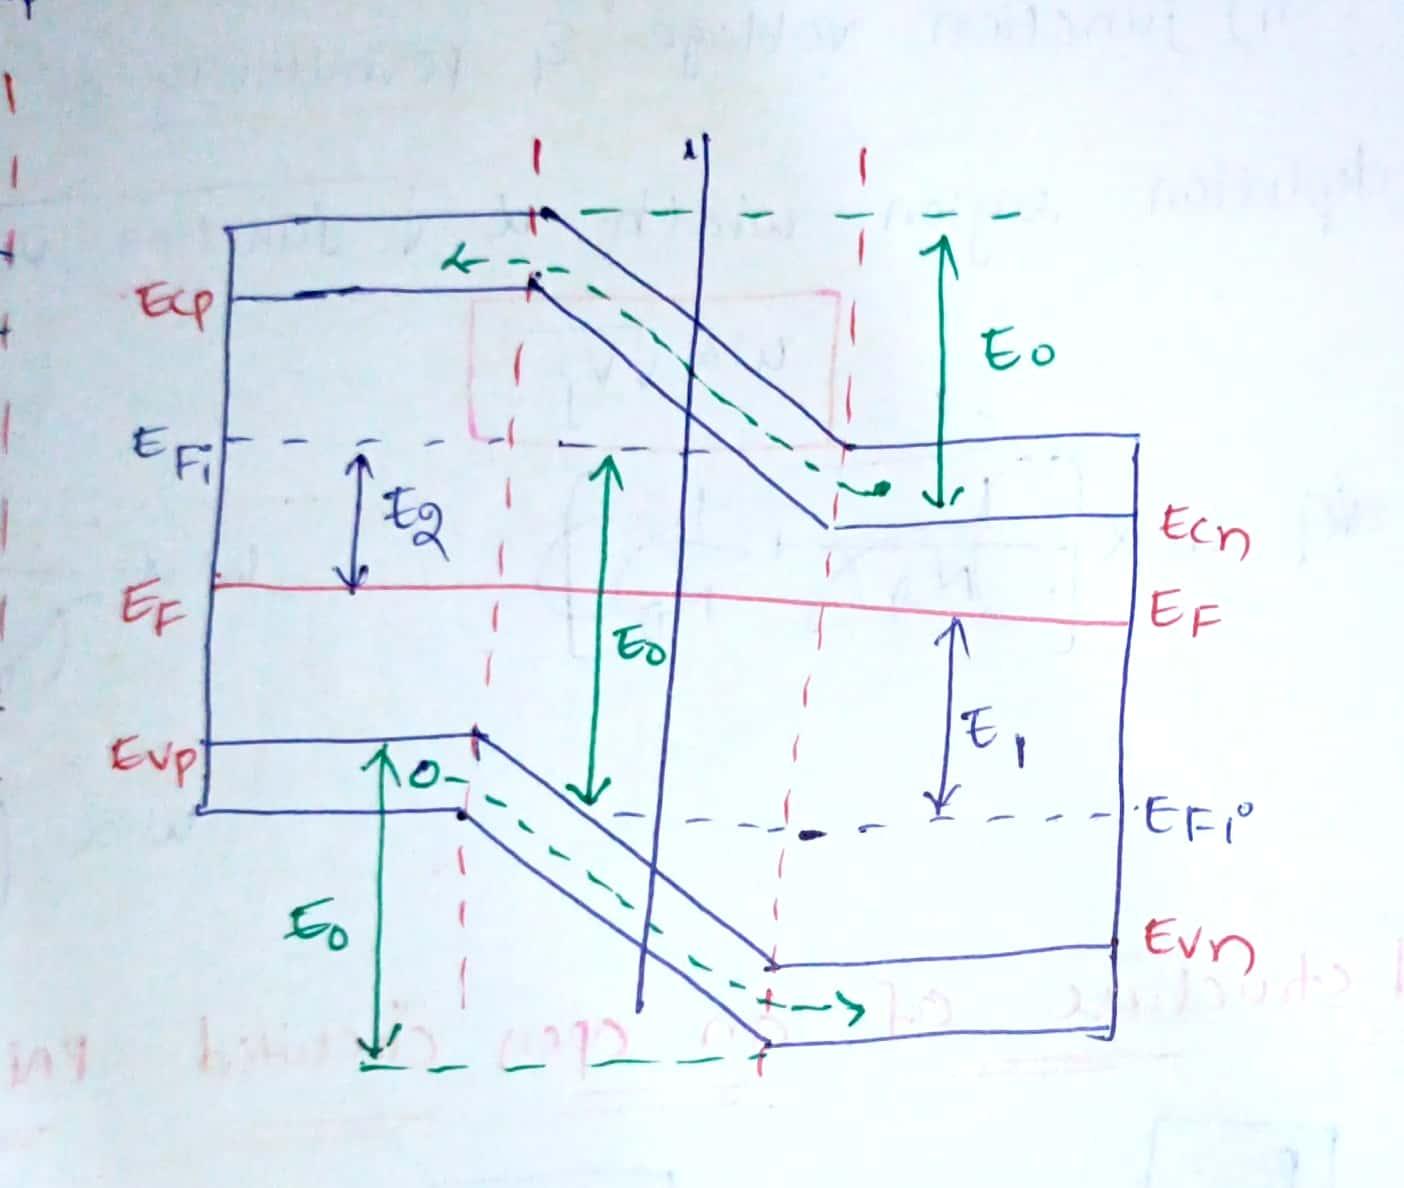 Ecp
Eo
EFi
E2
Ecn
EF
EF
Eo
E1
Evp
EFi
Eo
Evn